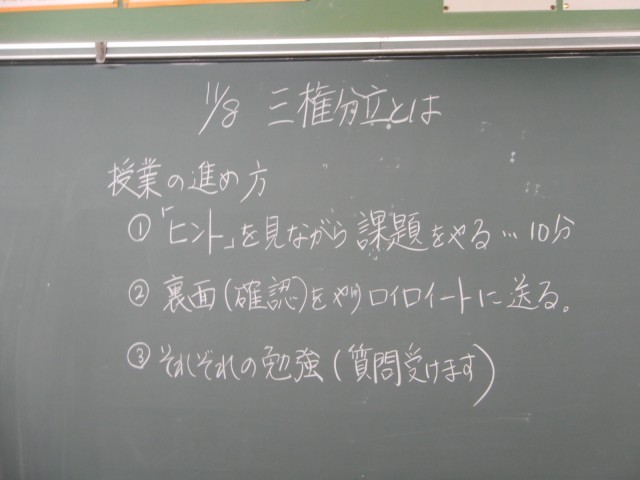 11/8 三権分立とは
授業の進め方
①「ヒント」を見ながら課題をやる…10分
②裏面(確認)をやりロイロノートに送る。
③それぞれの勉強(質問受けます)